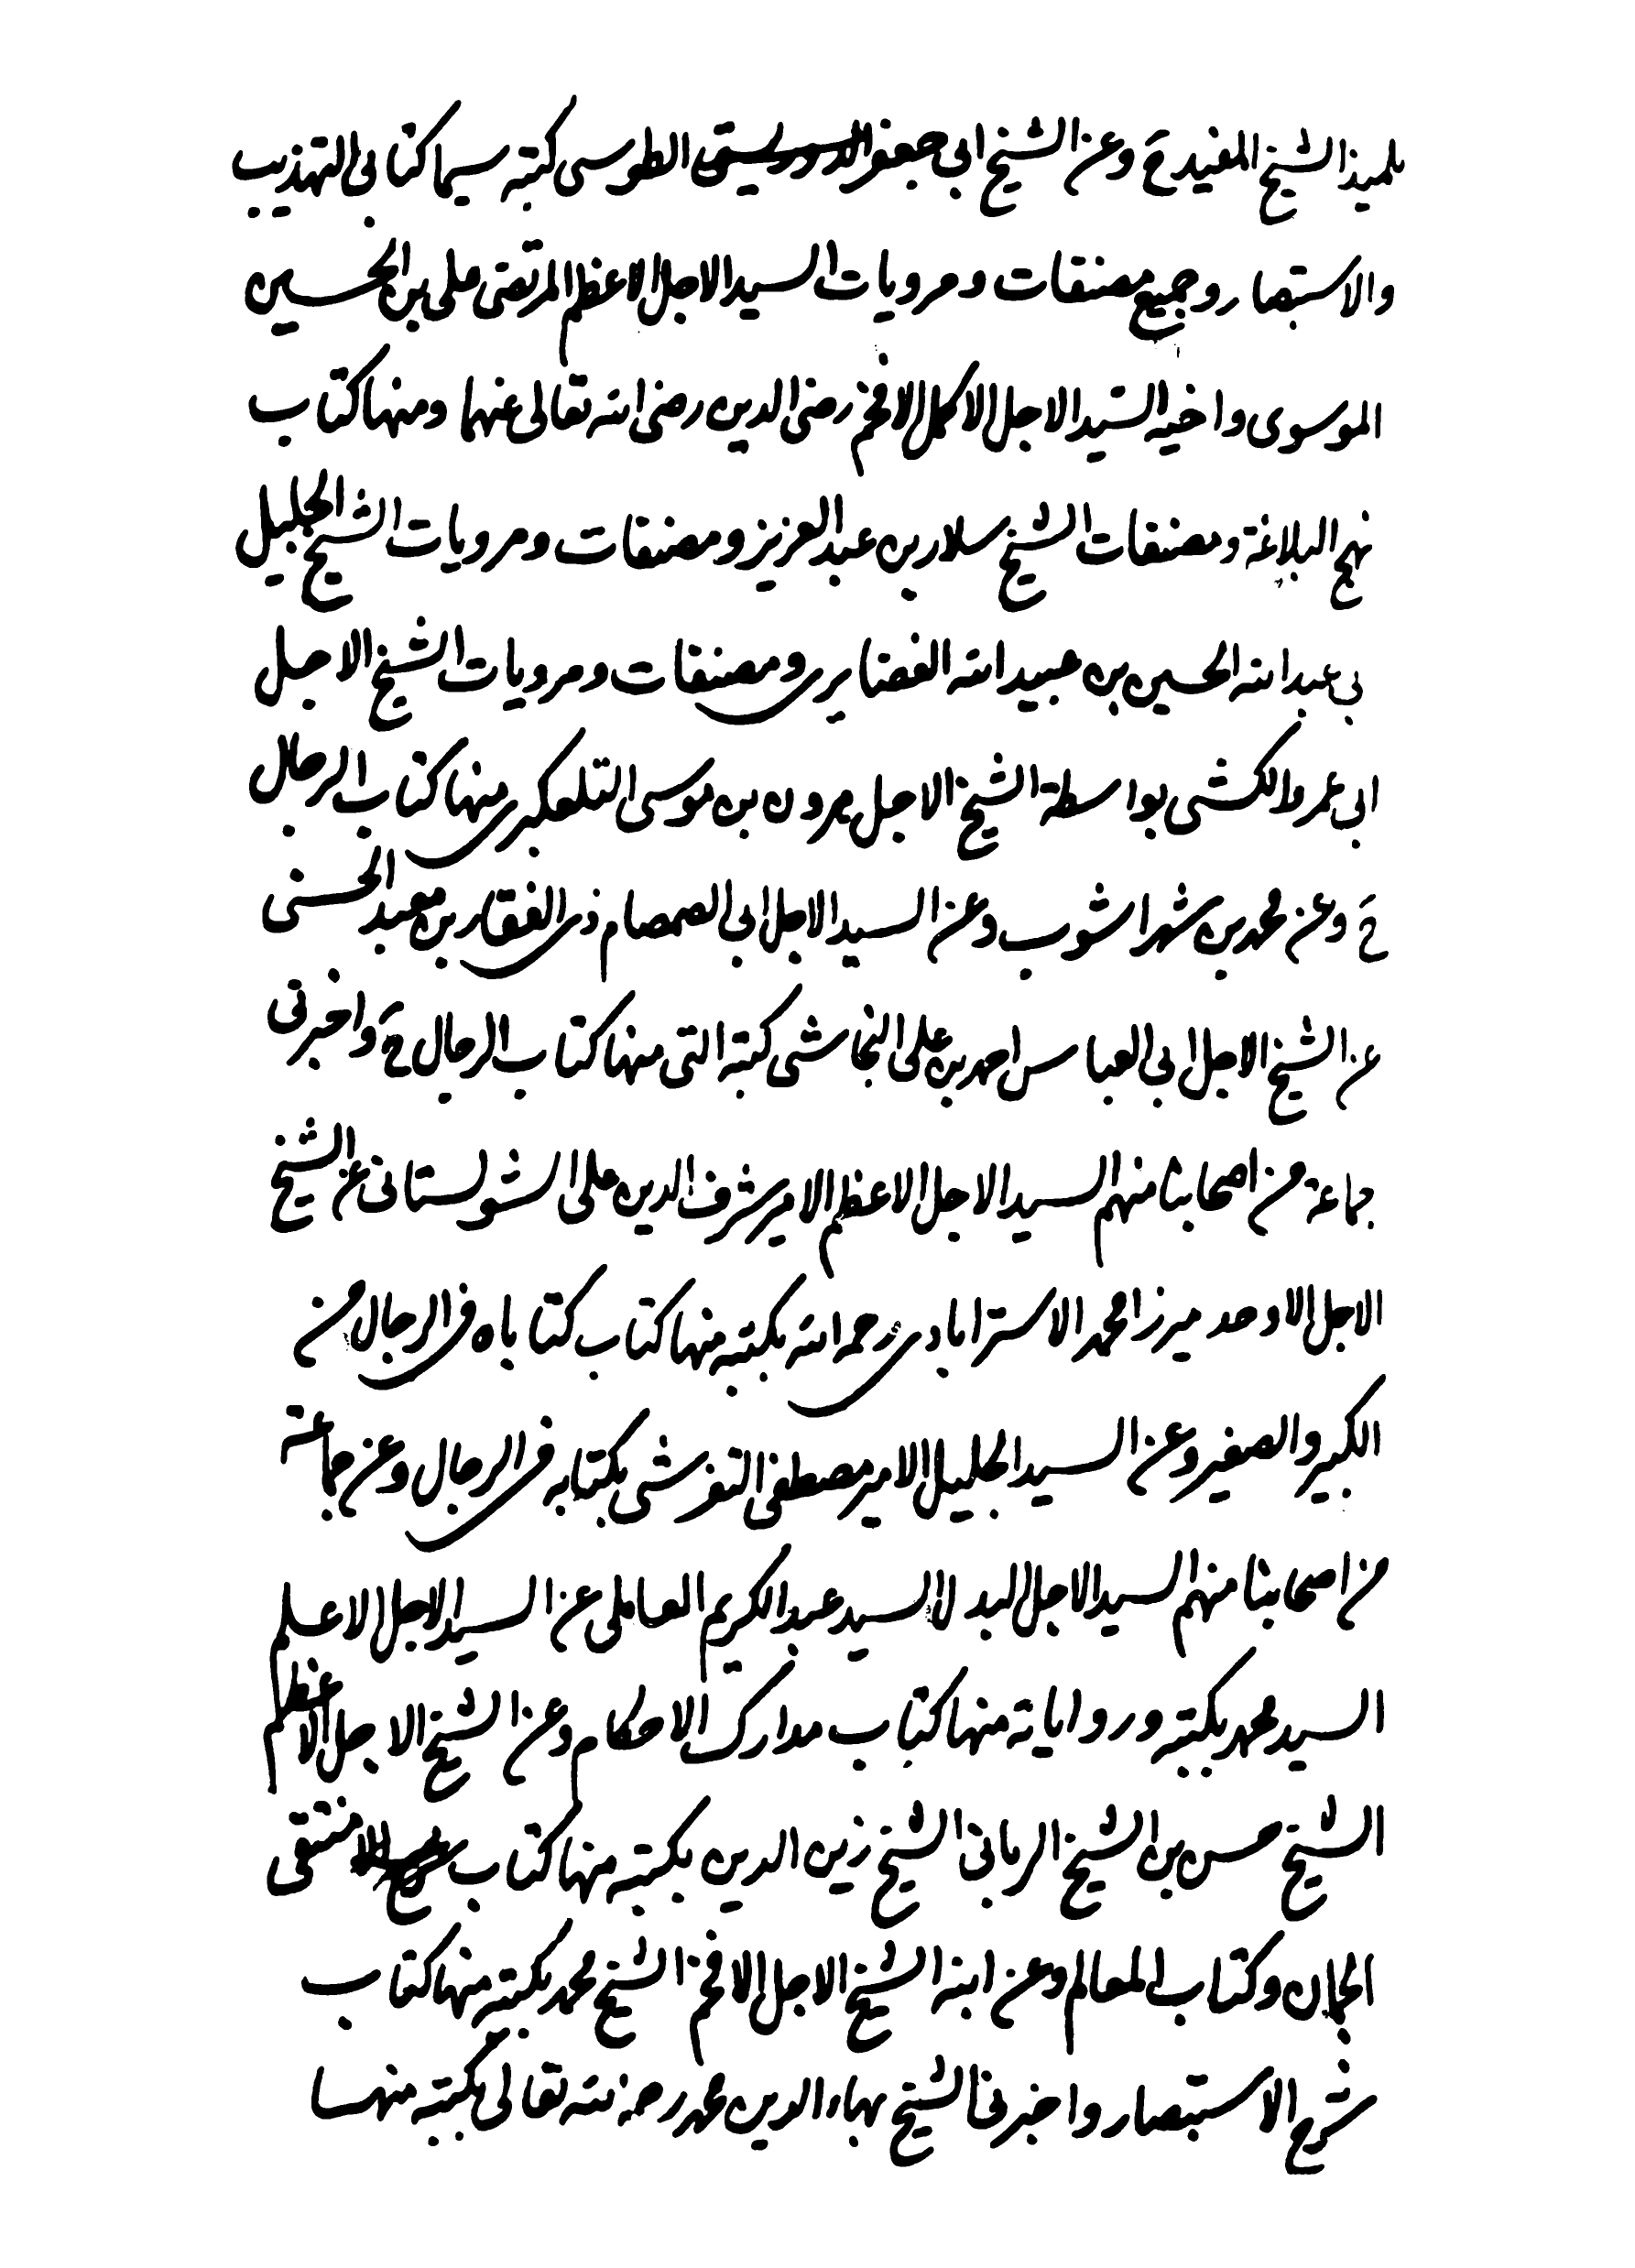 تلميذ الشيخ المفيد ح وعن الشيخ ابي جعفر الطوسي كتبه سيما كتابى التهذيب
والاستبصار وجميع مصنفات ومرويات السيد الاجل الاعظم المرتضى على بن الحسين
الموسوى واخيه السيد الاجل الاكمل الافخم رضى الدين رضى الله تعالى عنهما ومنها كتاب
نهج البلاغة ومصنفات الشيخ سلار بن عبد العزيز ومصنفات ومرويات الشيخ الجليل
بى عبد الله الحسين بن عبيد الله الغضايرى ومصنفات ومرويات الشيخ الاجل
ابى عمرو الكشى بواسطة الشيخ الاجل هرون بن موسى التلعكبرى منها كتاب الرجال
ح وعن محمد بن شهراشوب وعن السيد الاجل ابى الصمصام ذى الفقار بن معبد الحسنى
عن الشيخ الاجل ابى العباس احمد بن على النجاشى كتبه التى منها كتاب الرجال ح واخبرنى
جماعة من اصحابنا منهم السيد الاجل الاعظم الامير شرف الدين على الشولستانى عن الشيخ
الاجل الاوحد ميرزا محمد الاسترابادى رحمه الله بكتبه منها كتاب كتاباه فى الرجال من
الكبير والصغير وعن السيد الجليل الامير مصطفى التفرشى بكتابه فى الرجال وعن جماعة
من اصحابنا منهم السيد الاجل البدلا السيد عبد الكريم العاملى عن السيد الاجل الاعلم
السيد محمد بكتبه ورواياته منها كتاب مدارك الاحكام وعن الشيخ الاجل الاعظم
الشيخ حسن بن الشيخ الربانى الشيخ زين الدين بكتبه منها كتاب منتقى
الجمان وكتاب المعالم وعن ابنه الشيخ الاجل الافخم الشيخ محمد بكتبه منها كتاب
شرح الاستبصار واخبرنا الشيخ بهاء الدين محمد رحمه الله تعالى بكتبه منها